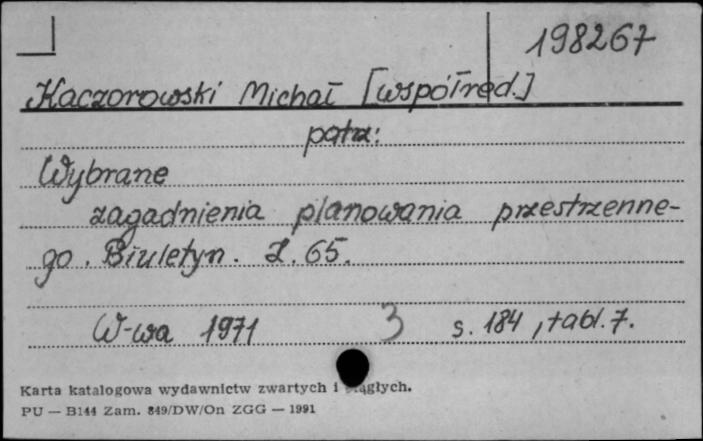 198267
Kaczorowski Michał [współred.]
patrz:
Wybrane
zagadnienia planowania przestrzenne-
go. Biuletyn. Z. 65.
W-wa 1971 3 s. 184, tabl. 7.
Karta katalogowa wydawnictw zwartych i ciągłych.
PU — B144 Zam. 849/DW/On ZGG — 1991